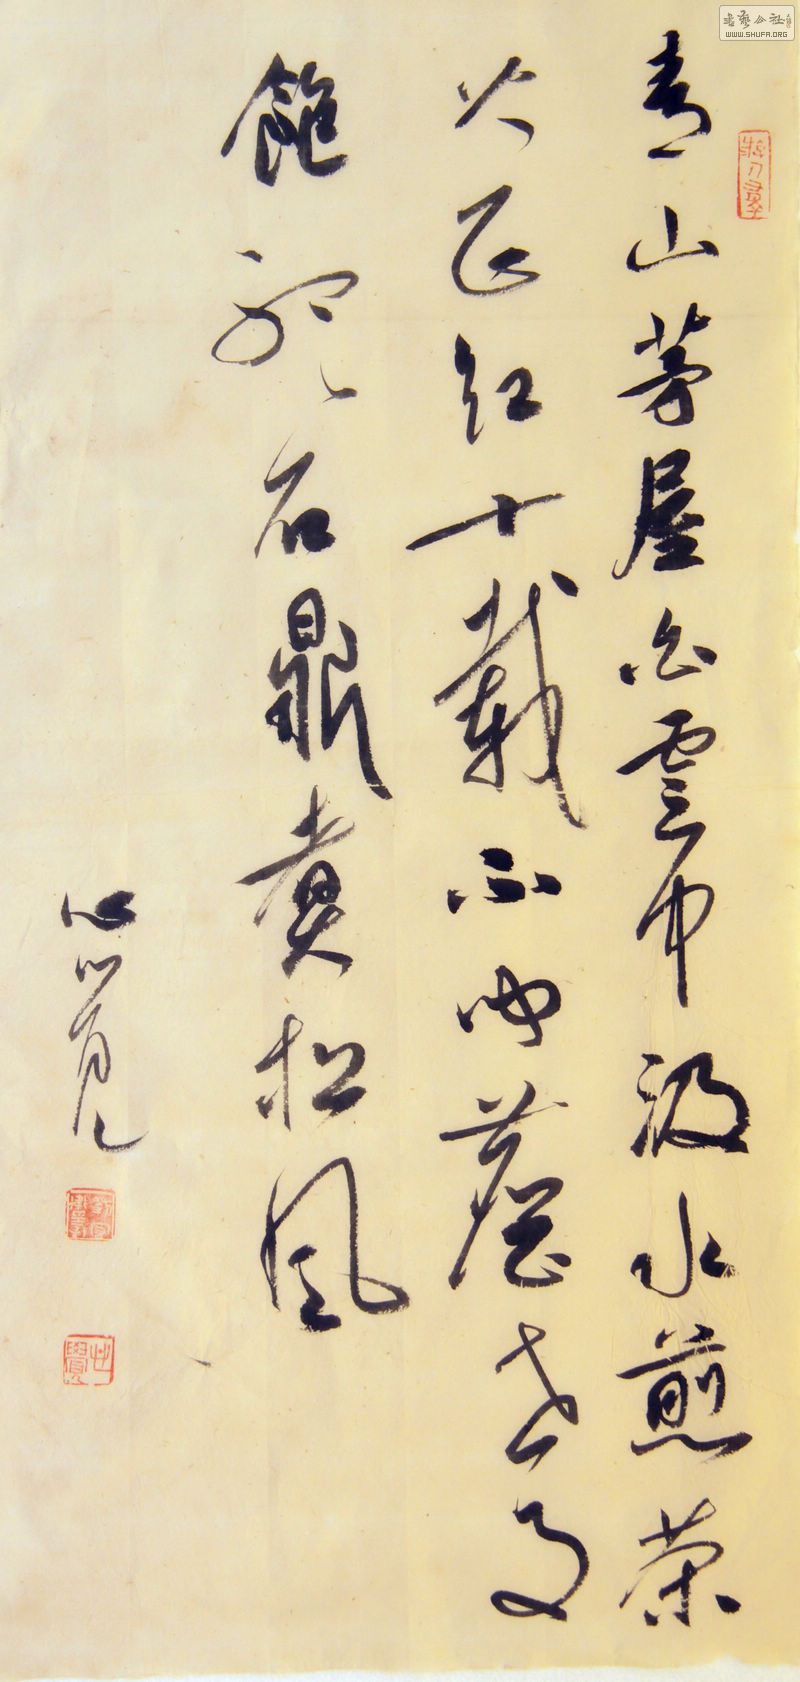 書藝公社
WWW.SHUFA.ORG
青山茅屋白雲中汲水煎茶
火正紅十載不聞塵世事
飽聽石鼎煮松風
心覺